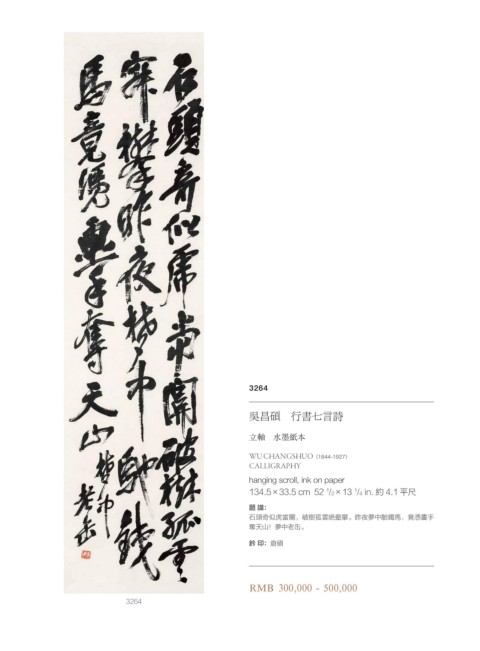 石頭奇似虎當關破樹孤雲
壑攀昨夜夢中馳鐵
馬竟憑畫手奪天山夢中
老缶
3264
3264
吳昌碩 行書七言詩
立軸 水墨紙本
WU CHANGSHUO (1844-1927)
CALLIGRAPHY
hanging scroll, ink on paper
134.5 × 33.5 cm 52 1/2 × 13 1/4 in. 約 4.1 平尺
題識：
石頭奇似虎當關，破樹孤雲絕壑攀。昨夜夢中馳鐵馬，竟憑畫手
奪天山！夢中老缶。
鈐印：倉碩
RMB 300,000 - 500,000